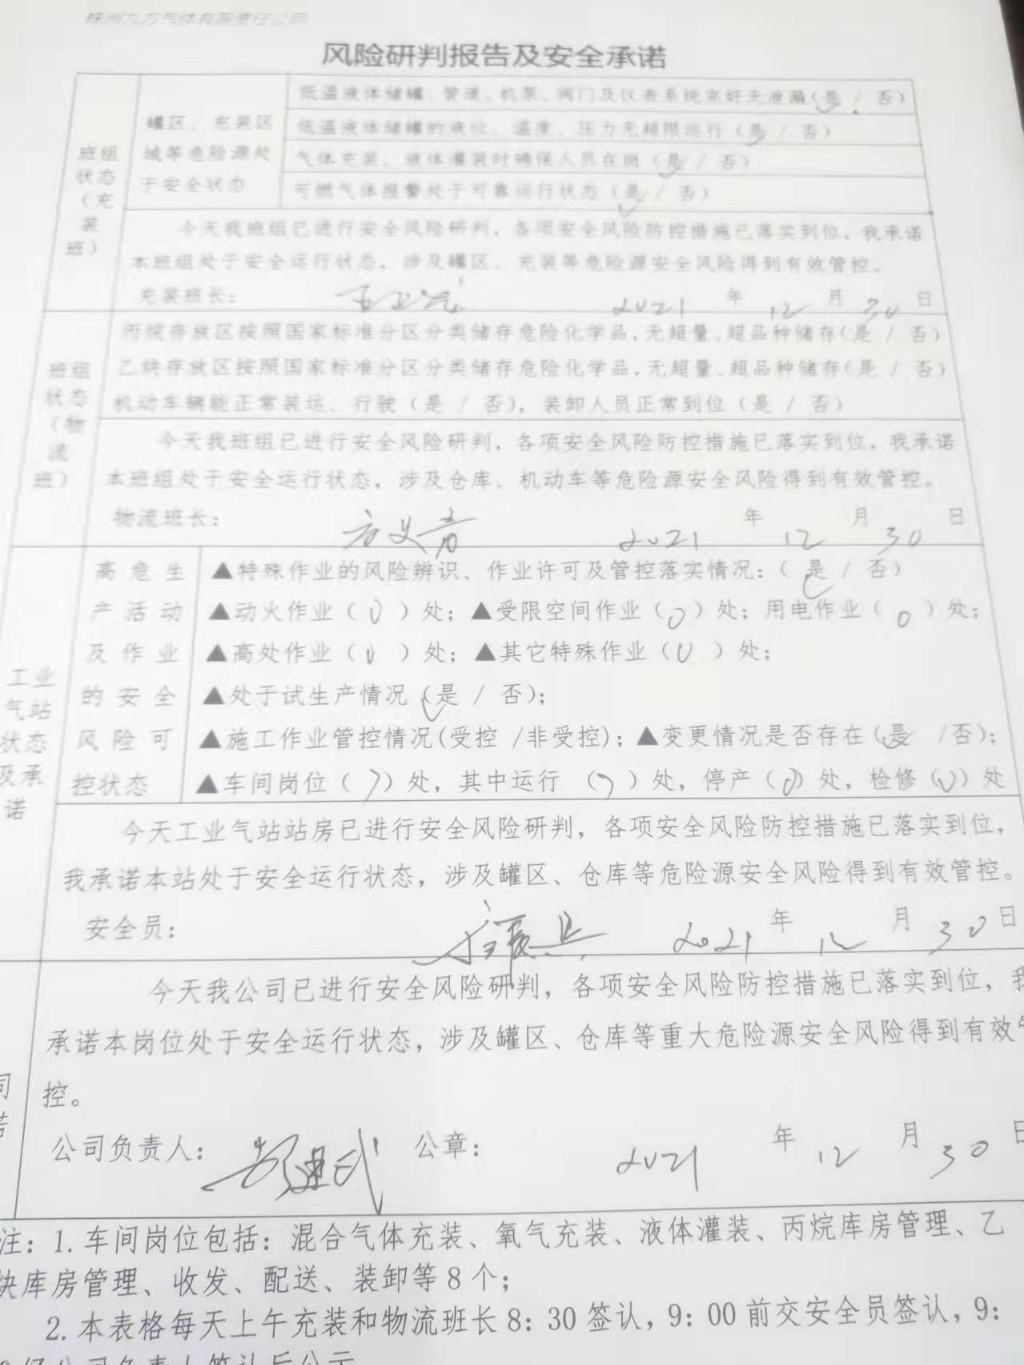 株洲九方气体有限责任公司
风险研判报告及安全承诺
班组状态（充装班）
罐区、充装区域等危险源处于安全状态
低温液体储罐、管道、机泵、阀门及仪表系统完好无泄漏(是 / 否)
低温液体储罐的液位、温度、压力无超限运行（是 / 否）
气体充装、液体灌装时确保人员在岗（是 / 否）
可燃气体报警处于可靠运行状态（是 / 否）
今天我班组已进行安全风险研判，各项安全风险防控措施已落实到位，我承诺
本班组处于安全运行状态，涉及罐区、充装等危险源安全风险得到有效管控。
充装班长： 2021 年 12 月 30 日
班组状态（物流班）
丙烷存放区按照国家标准分区分类储存危险化学品,无超量、超品种储存(是 / 否)
乙炔存放区按照国家标准分区分类储存危险化学品,无超量、超品种储存(是 / 否)
机动车辆能正常装运、行驶（是 / 否），装卸人员正常到位（是 / 否）
今天我班组已进行安全风险研判，各项安全风险防控措施已落实到位，我承诺
本班组处于安全运行状态，涉及仓库、机动车等危险源安全风险得到有效管控。
物流班长： 2021 年 12 月 30 日
工业气站状态及承诺
高危生产活动及作业的安全风险可控状态
▲特殊作业的风险辨识、作业许可及管控落实情况：（是 / 否）
▲动火作业（ 0 ）处；▲受限空间作业（ 0 ）处；用电作业（ 0 ）处；
▲高处作业（ 0 ）处；▲其它特殊作业（ 0 ）处；
▲处于试生产情况（是 / 否）；
▲施工作业管控情况(受控 /非受控)；▲变更情况是否存在(是 /否)；
▲车间岗位（ 7 ）处，其中运行（ 7 ）处，停产（ 0 ）处，检修（ 0 ）处
今天工业气站站房已进行安全风险研判，各项安全风险防控措施已落实到位，
我承诺本站处于安全运行状态，涉及罐区、仓库等危险源安全风险得到有效管控。
安全员： 2021 年 12 月 30 日
今天我公司已进行安全风险研判，各项安全风险防控措施已落实到位，我
承诺本岗位处于安全运行状态，涉及罐区、仓库等重大危险源安全风险得到有效
控。
公司负责人： 公章： 2021 年 12 月 30 日
注：1.车间岗位包括：混合气体充装、氧气充装、液体灌装、丙烷库房管理、乙
炔库房管理、收发、配送、装卸等8个；
2.本表格每天上午充装和物流班长8：30签认，9：00前交安全员签认，9：
公司负责人签认后公示